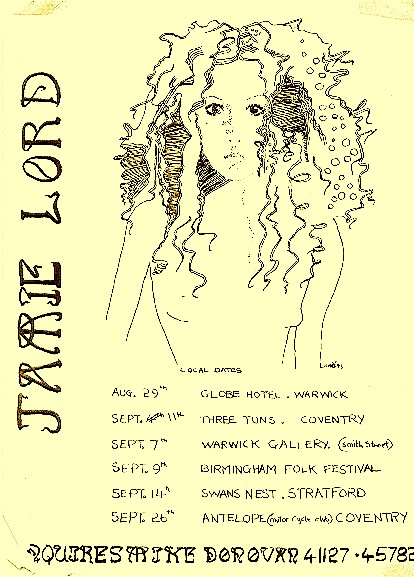 JAMIE LORD
LOCAL DATES
AUG. 29th GLOBE HOTEL. WARWICK
SEPT. 11th THREE TUNS. COVENTRY
SEPT. 7th WARWICK GALLERY. (Smith Street)
SEPT. 9th BIRMINGHAM FOLK FESTIVAL
SEPT. 14th SWANS NEST. STRATFORD
SEPT. 26th ANTELOPE (motor cycle club) COVENTRY
MIKE DONOVAN 41127 · 45783